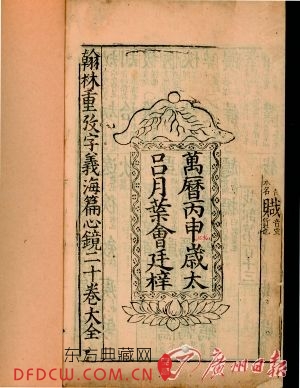 職
萬曆丙申歲太
呂月葉會廷梓
翰林重攷字義海篇心鏡二十卷大全
典藏网
DFDCW.COM
广州日报